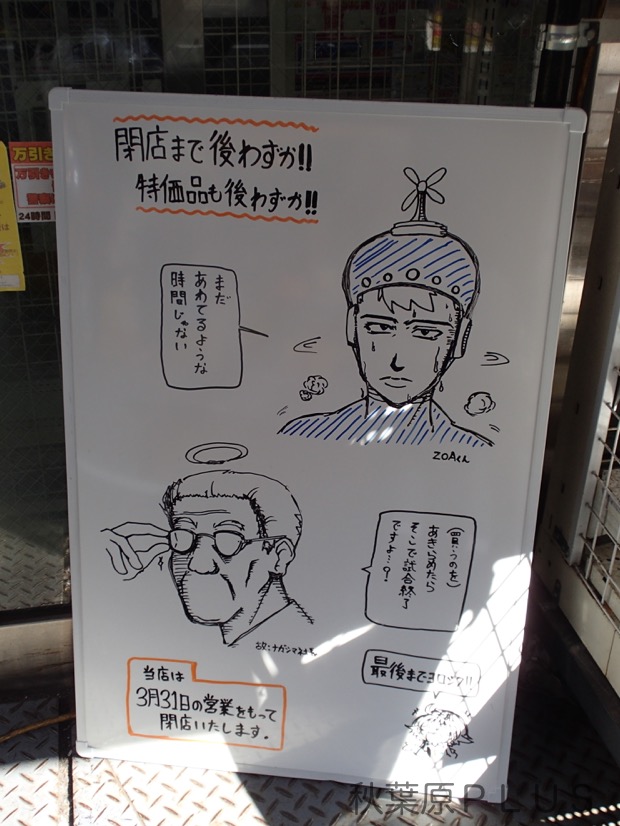 閉店まで後わずか!!
特価品も後わずか!!
まだ
あわてるような
時間じゃない
ZOAくん
(買うのを)
あきらめたら
そこで試合終了
ですよ…?
最後までヨロシク!!
当店は
3月31日の営業をもって
閉店いたします。
万引き
万引き
24時間
秋葉原PLUS